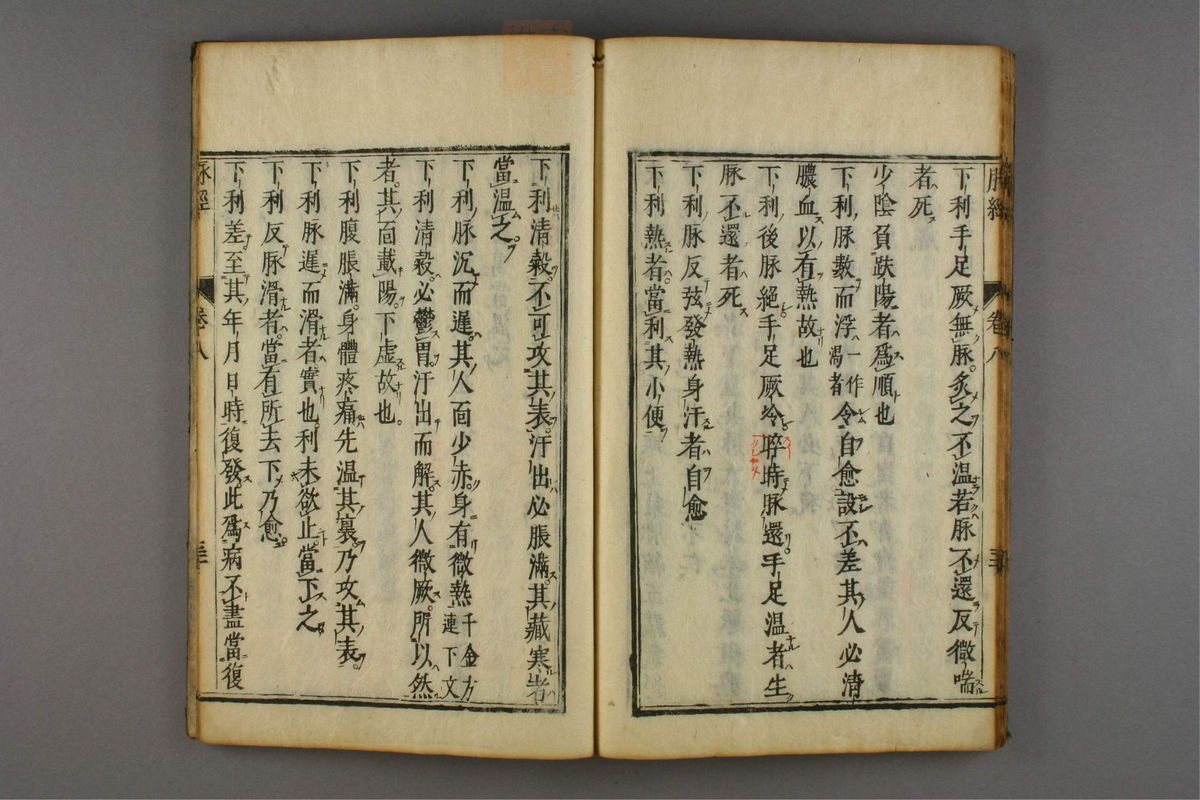 脉經
卷八
下利手足厥無脉灸之不溫若脉不還反微喘
者死
少陰負趺陽者為順也
下利脉數而浮一作渴者令自愈設不差其人必清
膿血以有熱故也
下利後脉絕手足厥冷晬時脉還手足溫者生
脉不還者死
下利脉反弦發熱身汗者自愈
下利熱者當利其小便
下利清穀不可攻其表汗出必脹滿其藏寒者
當溫之
下利脉沉而遲其人面少赤身有微熱千金方連下文
下利清穀必鬱冒汗出而解其人微厥所以然
者其面戴陽下虛故也
下利腹脹滿身體疼痛先溫其裏乃攻其表
下利脉遲而滑者實也利未欲止當下之
下利反脉滑者當有所去下乃愈
下利差至其年月日時復發此爲病不盡當復
脉經
卷八